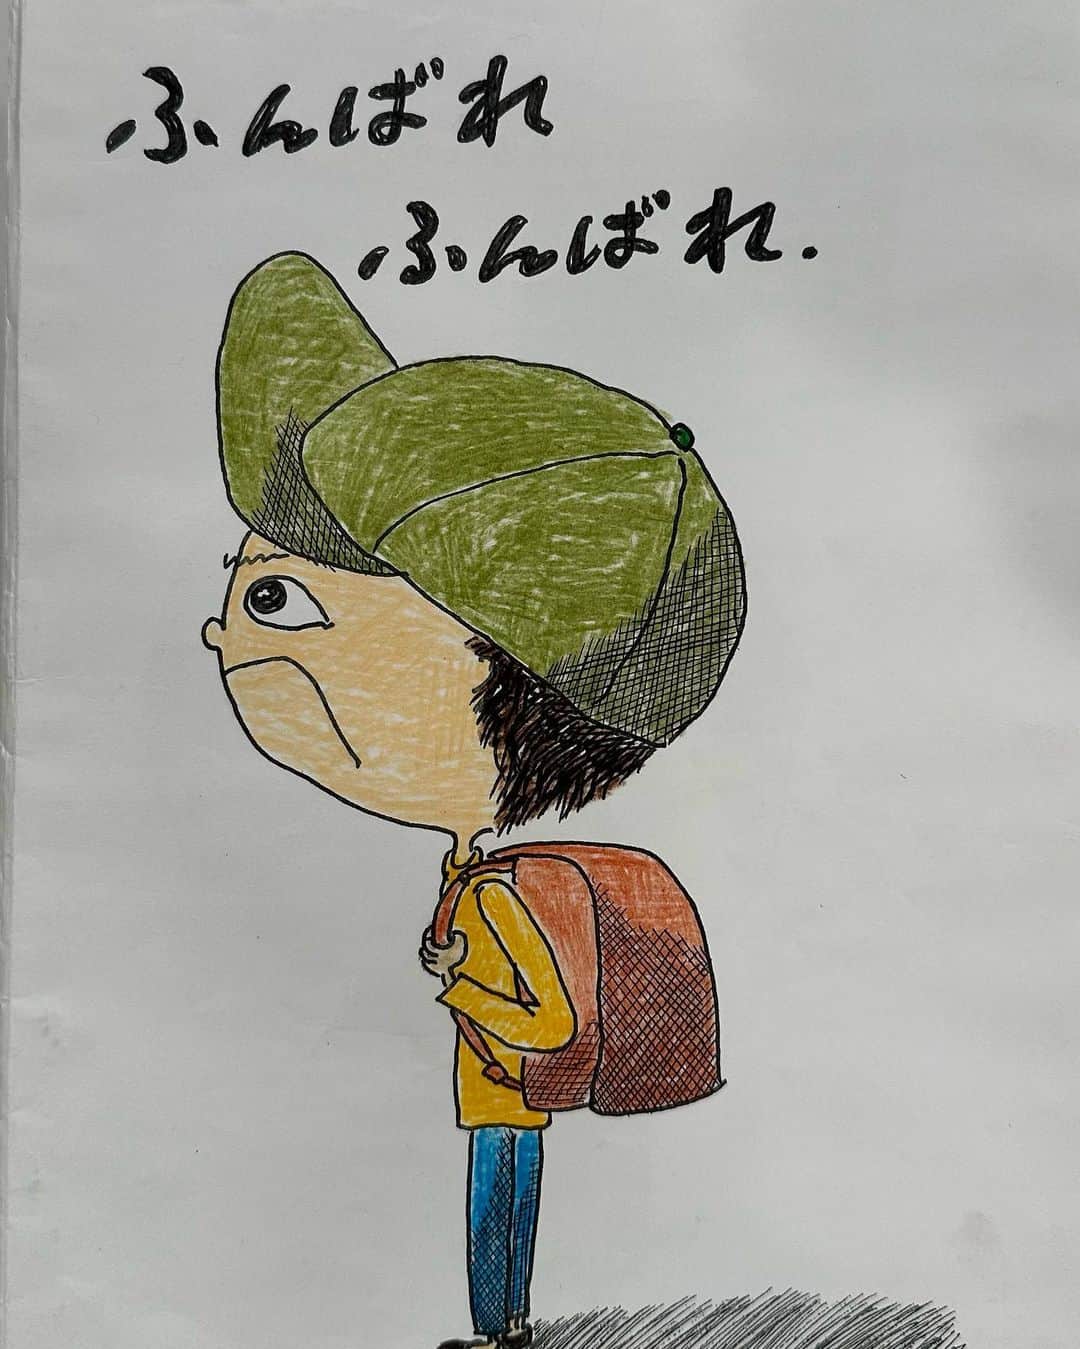 ふんばれ
ふんばれ.